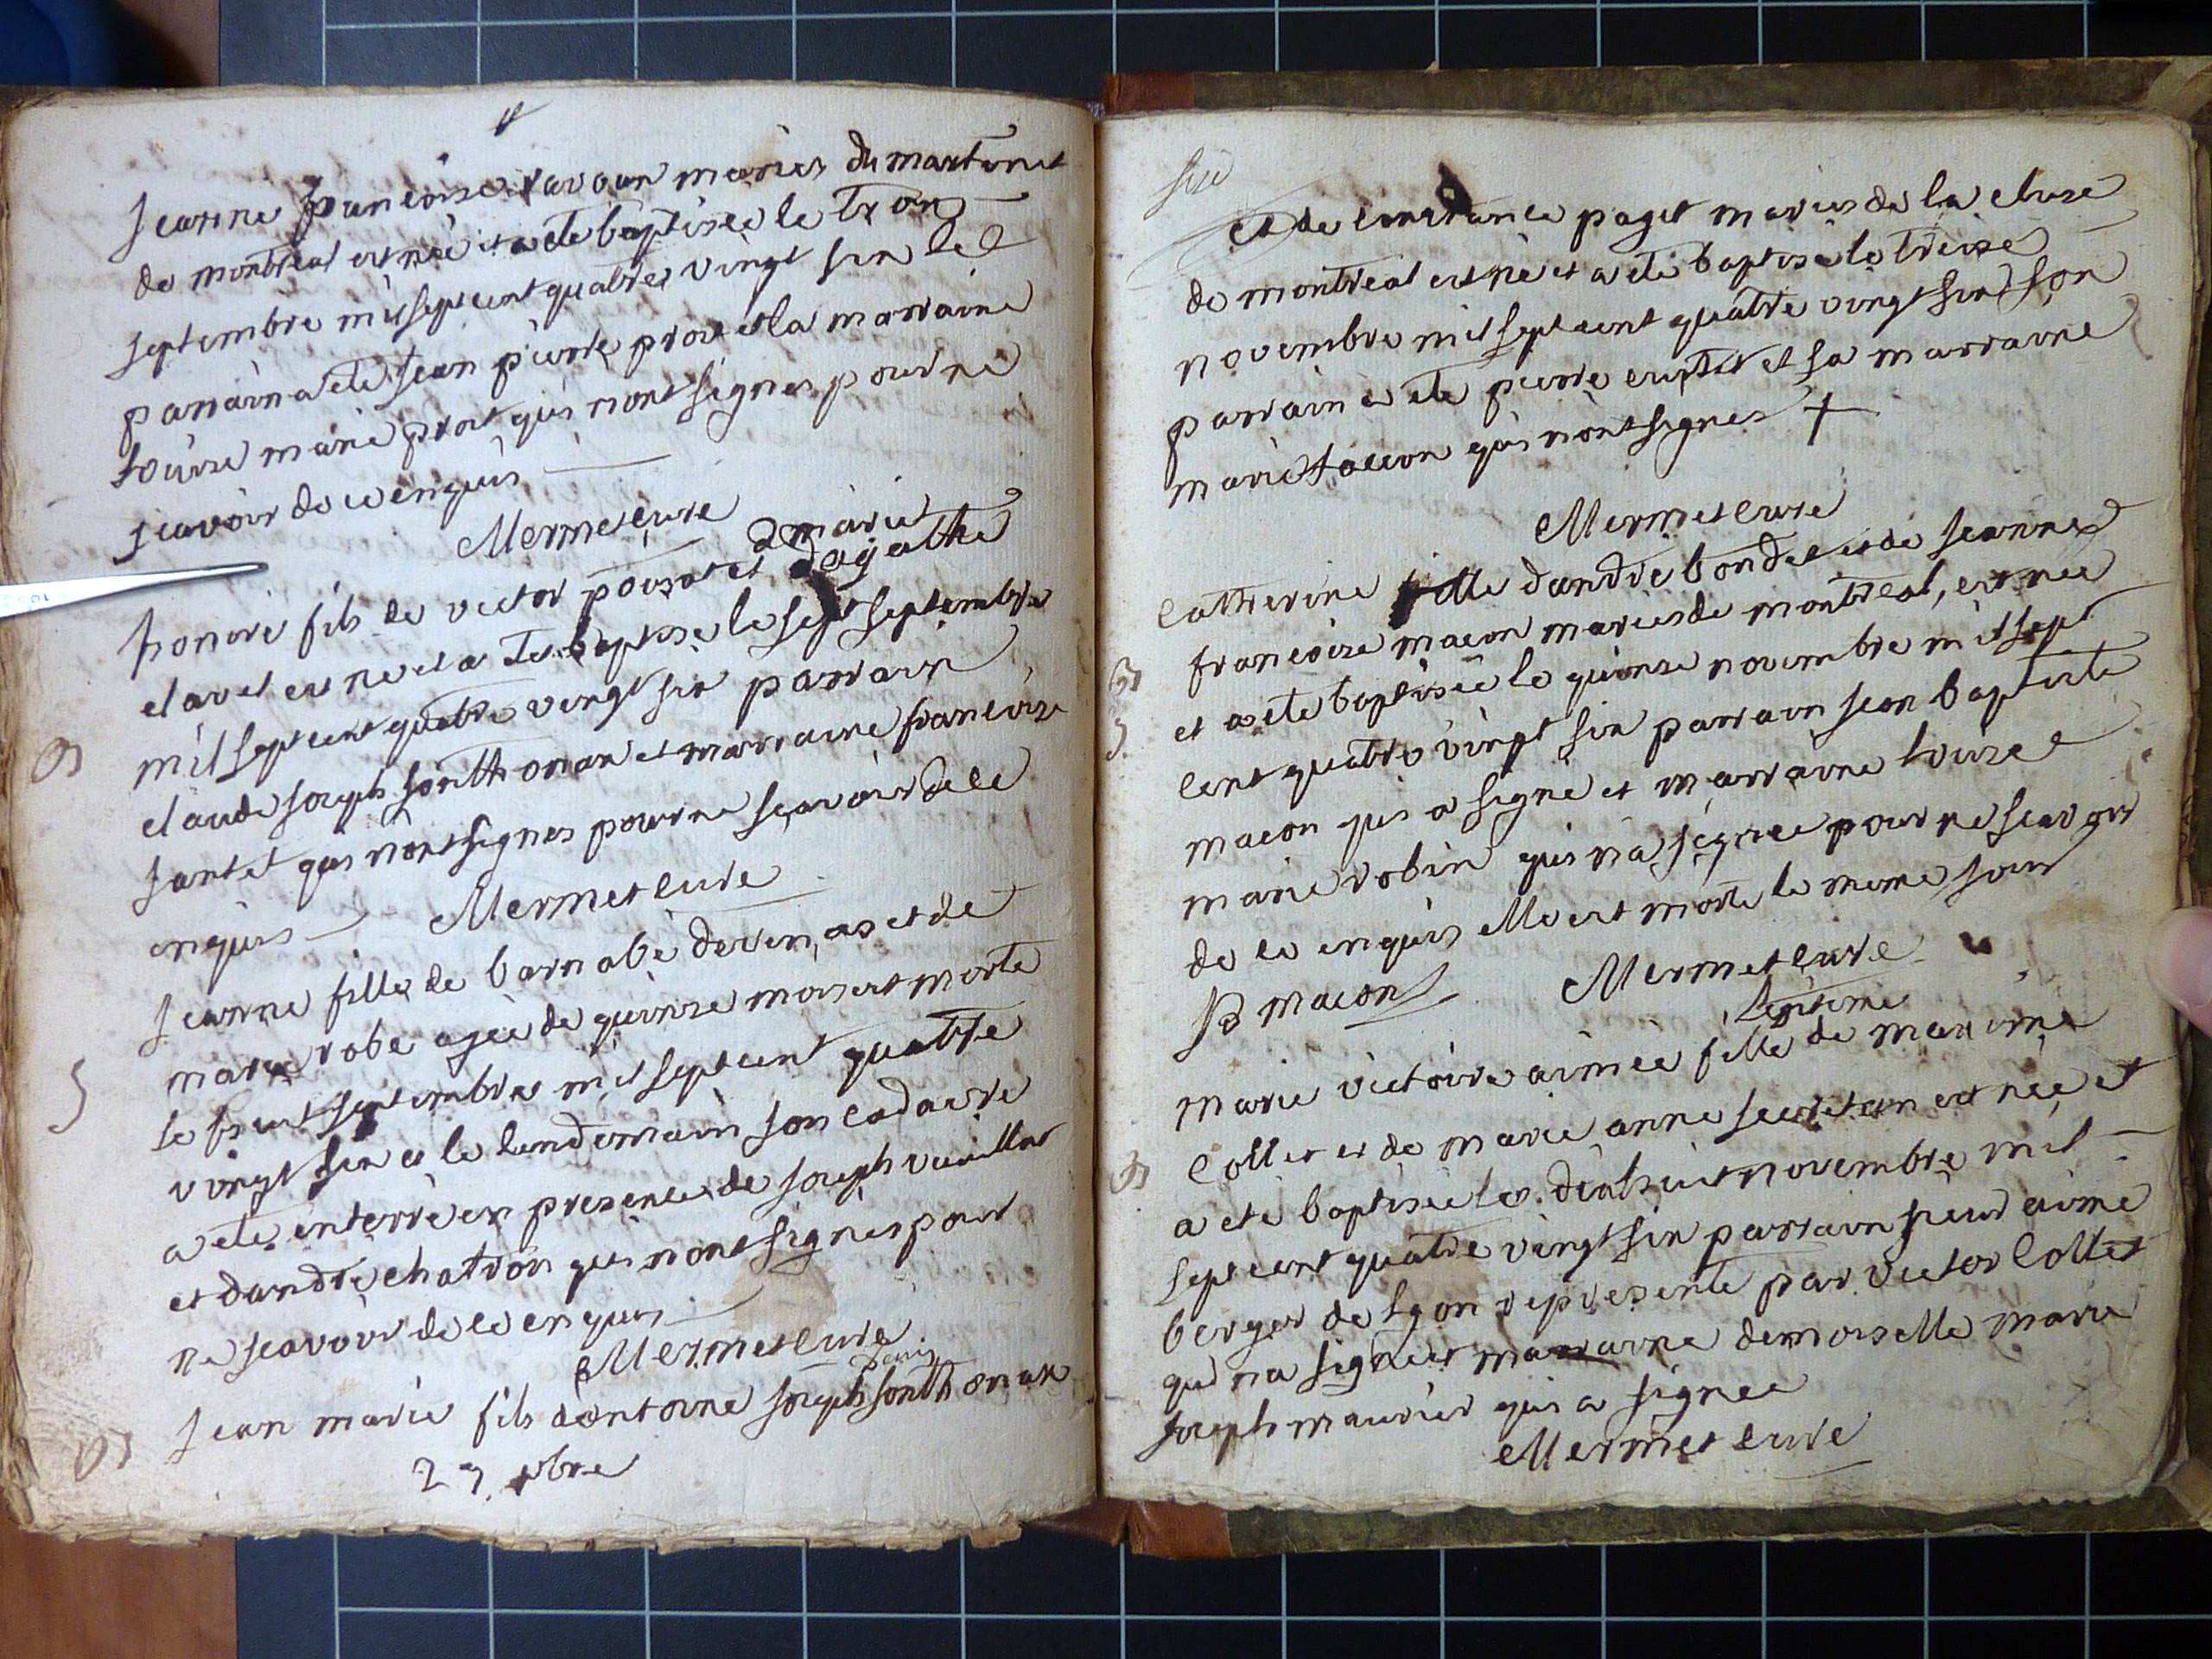 Jeanne francoise mariés du martinet
de montreal est née et a ete baptisée le trois
septembre mil sept cent quatres vingt six le
parrain a été jean pierre prost et la marraine
Louise marie prost qui n'ont signes pour ne
scavoir de ce enquis
Mermet curé
d marie
honoré fils de victor poizat et dagathe
clavet est ne et a ete baptisé le sept septembre
mil sept cent quatre vingt six parrain
claude joseph sonthonax et marraine francoise
jantet qui n'ont signes pour ne scavoir de ce
enquis Mermet curé
Jeanne fille de barnabé devenas et de
marie robe agée de quinze mois est morte
le huit septembre mil sept cent quatre
vingt six et le lendemain son cadavre
a ete enterré en presence de joseph vuaillat
et dandré chatron qui n'ont signés pour
ne scavoir de ce enquis
Mermet curé
Jean marie fils dantoine joseph sonthonax
27. bre
et de constance paget mariés de la cluse
de montreal est né et a ete baptisé le treize
novembre mil sept cent quatre vingt six son
parrain a ete pierre et sa marraine
marie tacon qui n'ont signes +
Mermet curé
Catherine fille dandré bondet et de jeanne
francoise macon mariés de montreal, est née
et a ete baptisée le quinze novembre mil sept
cent quatre vingt six parrain jean baptiste
macon qui a signé et marraine Louise
marie robin qui n'a signee pour ne scavoir
de ce enquis elle est morte le meme jour
JB macon Mermet curé
Légitime
Marie victoire aimée fille de maxime
Collet et de marie anne secretan est née et
a eté baptisée le dixhuit novembre mil
sept cent quatre vingt six parrain sieur aimé
berger de Lyon representé par victor Collet
qui n'a signé et marraine demoiselle marie
joseph maurier qui a signee
Mermet curé